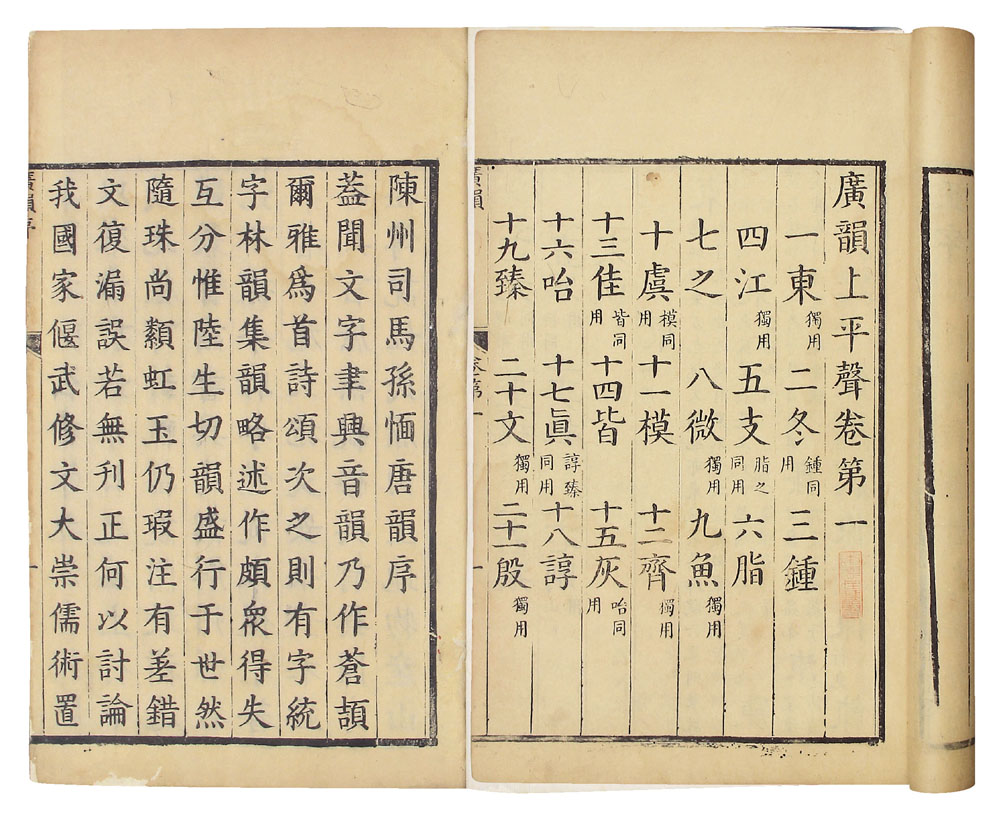 廣韻上平聲卷第一
一東獨用二冬鍾同用三鍾
四江獨用五支脂之同用六脂
七之八微獨用九魚獨用
十虞模同用十一模十二齊獨用
十三佳皆同用十四皆十五灰咍同用
十六咍十七眞諄臻同用十八諄
十九臻二十文獨用二十一殷獨用
廣韻
陳州司馬孫愐唐韻序
蓋聞文字聿興音韻乃作蒼頡
爾雅爲首詩頌次之則有字統
字林韻集韻略述作頗衆得失
互分惟陸生切韻盛行于世然
隨珠尚纇虹玉仍瑕注有差錯
文復漏誤若無刊正何以討論
我國家偃武修文大崇儒術置
廣韻序